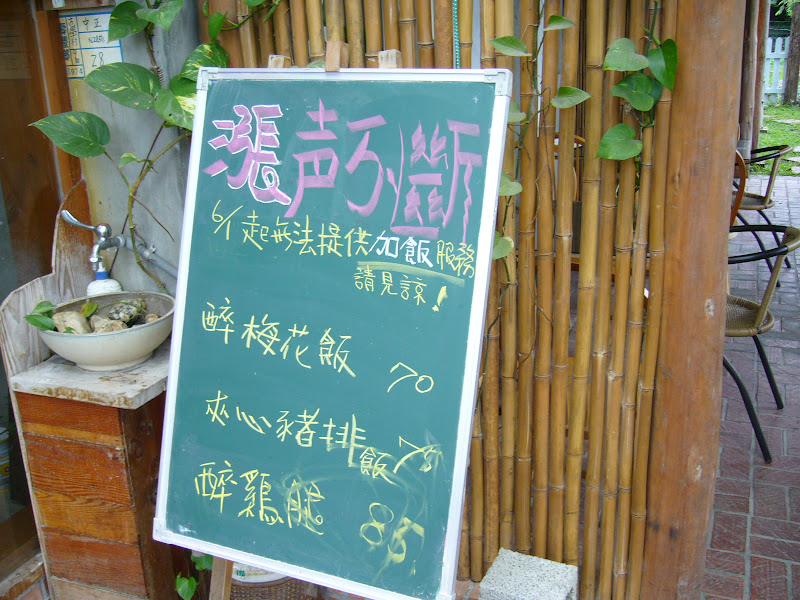 漲声不斷
6/1起無法提供加飯服務
請見諒!
醉梅花飯 70
夾心豬排飯 75
醉鷄腿 85